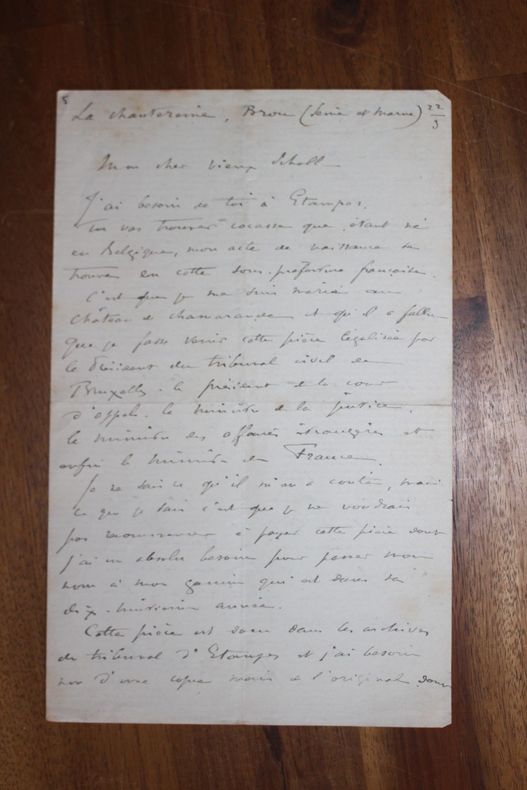 La chantereine, Brou (Seine et Marne) 22/3
Mon cher vieux Scholl
J'ai besoin de toi à Etampes.
Tu vas trouver cocasse que, étant né
en Belgique, mon acte de naissance se
trouve en cette sous-préfecture française.
C'est que je me suis marié au
Château de Chamarande et qu'il a fallu
que je fasse venir cette pièce légalisée par
le Président du tribunal civil de
Bruxelles - le président de la cour
d'appel - le ministre de la justice,
le ministre des affaires étrangères et
enfin le ministre de France.
Je ne sais ce qu'il m'en a coûté, mais
ce que je sais c'est que je ne voudrais
pas recommencer à payer cette pièce dont
j'ai un absolu besoin pour passer mon
nom à mon gamin qui est dans sa
dix-huitième année.
Cette pièce est donc dans les archives
du tribunal d'Etampes et j'ai besoin
non d'une copie mais de l'original, donc